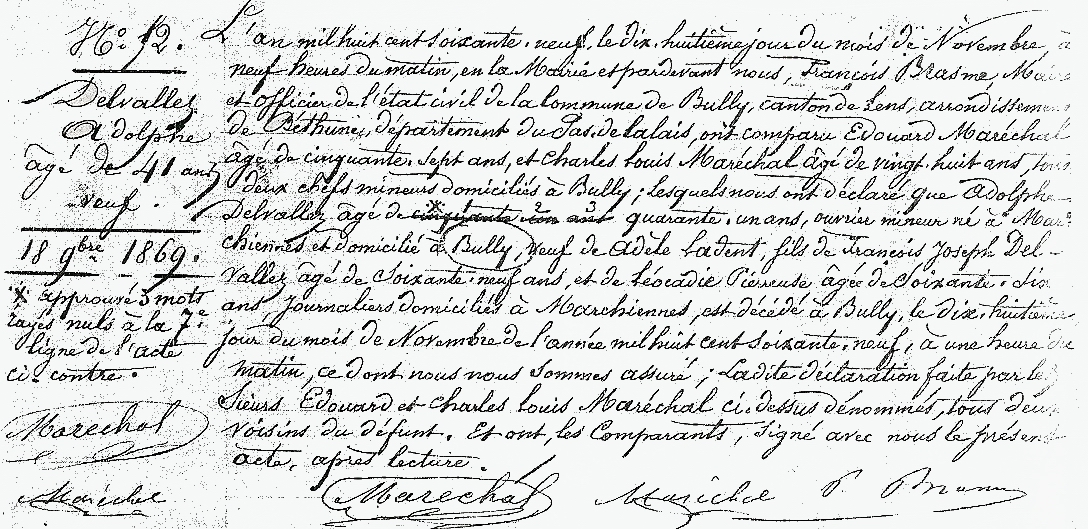 N° 92.
Delvallez
Adolphe
âgé de 41 ans
veuf.
18 9bre 1869.
X approuvé 3 mots
rayés nuls à la 7e
ligne de l'acte
ci-contre.
Maréchal
L'an mil huit cent soixante-neuf, le dix-huitième jour du mois de Novembre, à
neuf heures du matin, en la Mairie et pardevant nous, François Brasme, Maire
et officier de l'état civil de la commune de Bully, canton de Lens, arrondissement
de Béthune, département du Pas-de-Calais, ont comparu Edouard Maréchal
âgé de cinquante-sept ans, et Charles Louis Maréchal âgé de vingt-huit ans, tous
deux chefs mineurs domiciliés à Bully; lesquels nous ont déclaré que Adolphe
Delvallez âgé de cinquante un ans quarante-un ans, ouvrier mineur né à Mar-
chiennes et domicilié à Bully, veuf de Adèle Ladent, fils de François Joseph Del-
vallez âgé de soixante-neuf ans, et de Léocadie Pierreuse âgée de soixante-dix
ans, Journaliers domiciliés à Marchiennes, est décédé à Bully, le dix-huitième
jour du mois de Novembre de l'année mil huit cent soixante-neuf, à une heure du
matin, ce dont nous nous sommes assuré; Ladite déclaration faite par les
Sieurs Edouard et Charles Louis Maréchal ci-dessus dénommés, tous deux
voisins du défunt. Et ont, les Comparants, signé avec nous le présent
acte, après lecture.
Maréchal Maréchal Maréchal